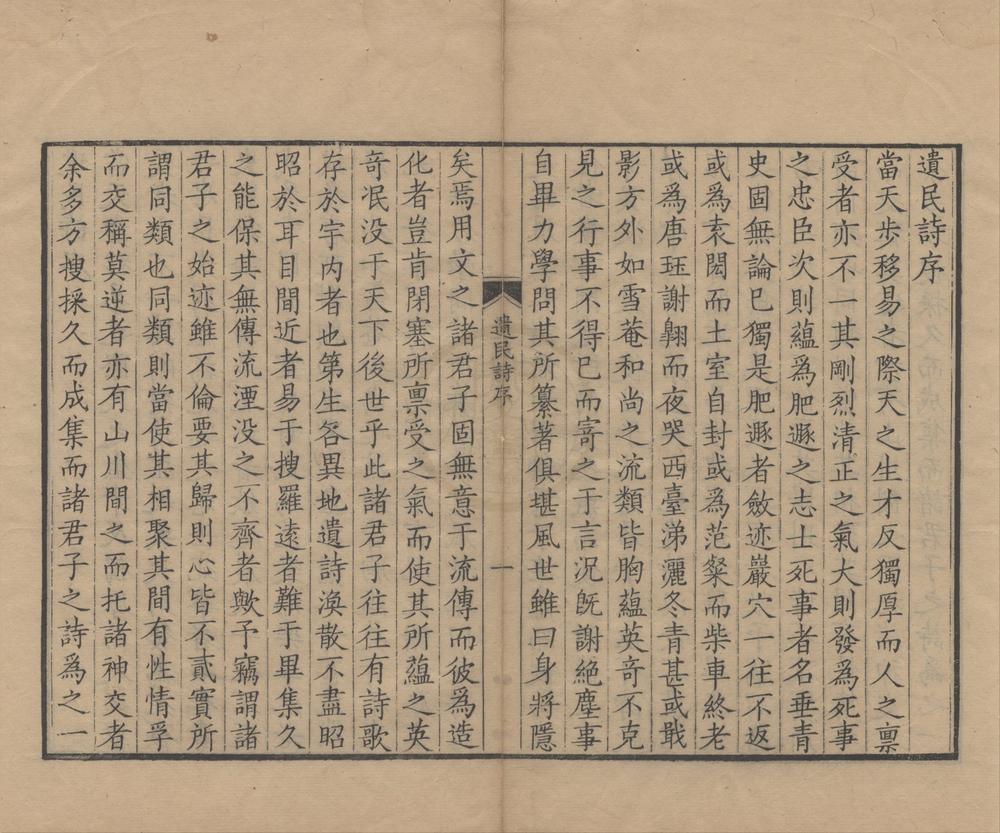 遺民詩序
當天歩移易之際天之生才反獨厚而人之禀
受者亦不一其剛烈清正之氣大則發爲死事
之忠臣次則蘊爲肥遯之志士死事者名垂青
史固無論已獨是肥遯者斂迹巖穴一往不返
或爲袁閎而土室自封或爲范粲而柴車終老
或爲唐珏謝翺而夜哭西臺涕灑冬青甚或戢
影方外如雪菴和尚之流類皆胸蘊英竒不克
見之行事不得已而寄之于言况旣謝絶塵事
自畢力學問其所纂著俱堪風世雖曰身將隱
遺民詩序
一
矣焉用文之諸君子固無意于流傳而彼爲造
化者豈肯閉塞所禀受之氣而使其所蘊之英
竒泯没于天下後世乎此諸君子往往有詩歌
存於宇内者也第生各異地遺詩渙散不盡昭
昭於耳目間近者易于搜羅遠者難于畢集久
之能保其無傳流湮没之不齊者歟予竊謂諸
君子之始迹雖不倫要其歸則心皆不貳實所
謂同類也同類則當使其相聚其間有性情孚
而交稱莫逆者亦有山川間之而托諸神交者
余多方搜採久而成集而諸君子之詩爲之一